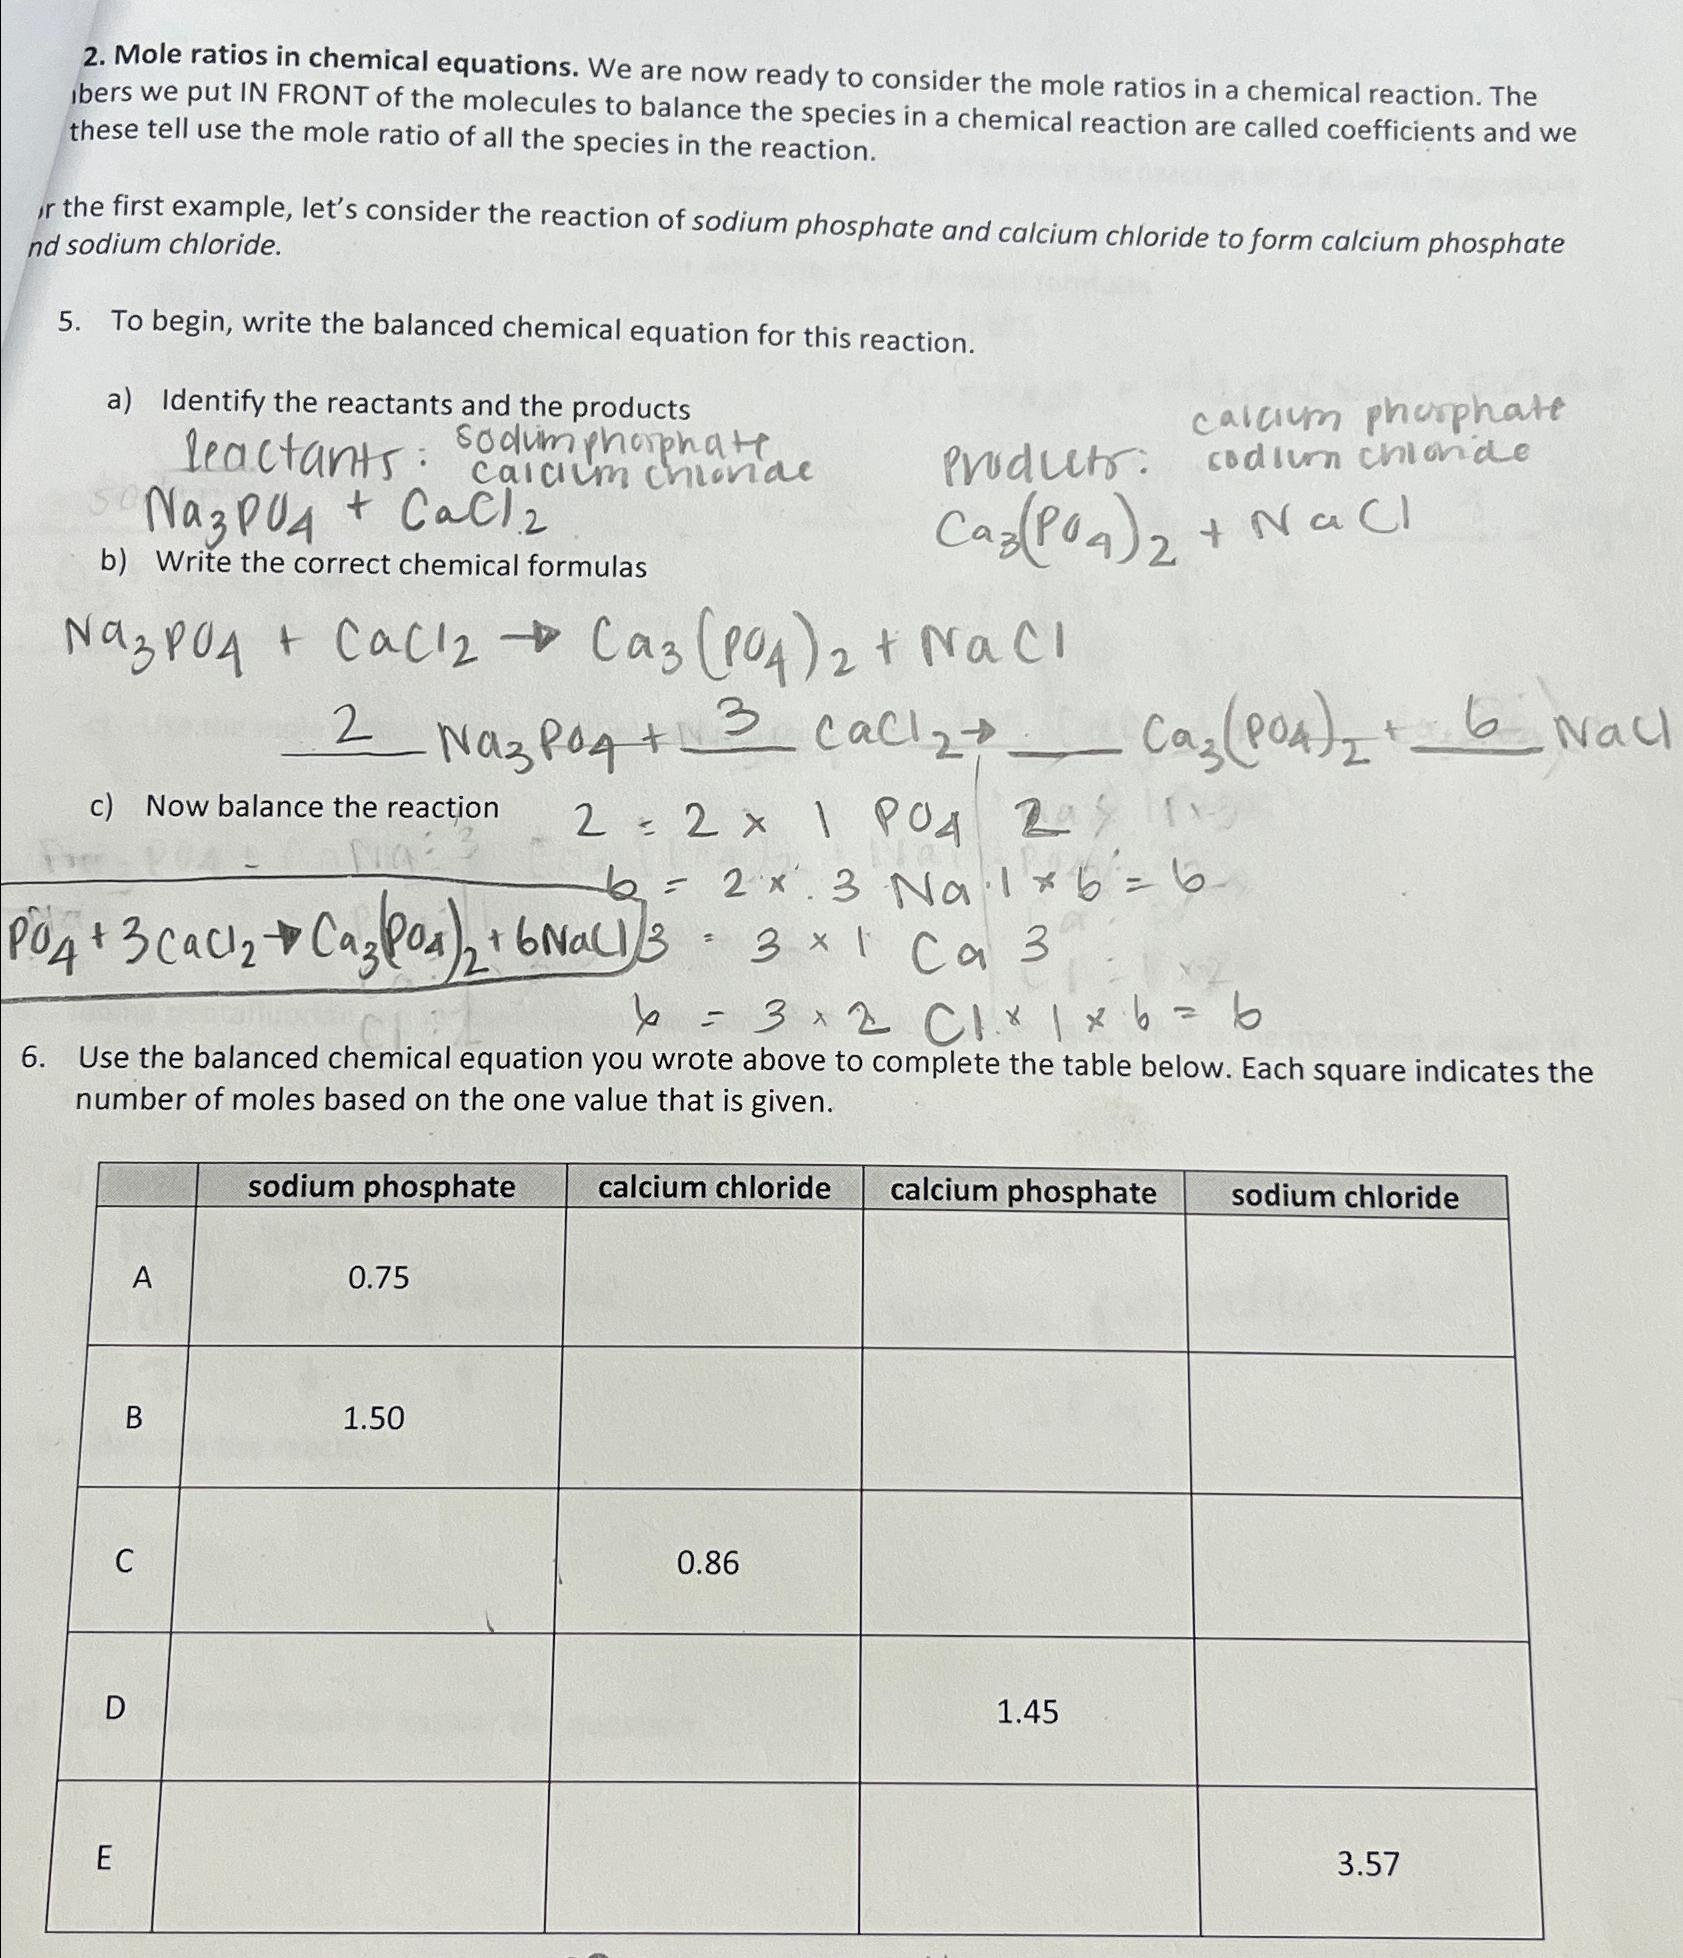 2. Mole ratios in chemical equations. We are now ready to consider the mole ratios in a chemical reaction. The
bers we put IN FRONT of the molecules to balance the species in a chemical reaction are called coefficients and we
these tell use the mole ratio of all the species in the reaction.
r the first example, let's consider the reaction of sodium phosphate and calcium chloride to form calcium phosphate
nd sodium chloride.
5. To begin, write the balanced chemical equation for this reaction.
a) Identify the reactants and the products
Reactants: sodium phosphate
calcium chloride
Products: calcium phosphate
sodium chloride
Na₃PO₄ + CaCl₂
Ca₃(PO₄)₂ + NaCl
b) Write the correct chemical formulas
Na₃PO₄ + CaCl₂ → Ca₃(PO₄)₂ + NaCl
2 Na₃PO₄ + 3 CaCl₂ → ___ Ca₃(PO₄)₂ + 6 NaCl
c) Now balance the reaction
2 = 2 × 1 PO₄ 2
6 = 2 × 3 Na 1 × 6 = 6
PO₄ + 3CaCl₂ → Ca₃(PO₄)₂ + 6NaCl
3 = 3 × 1 Ca 3
6 = 3 × 2 Cl × 1 × 6 = 6
6. Use the balanced chemical equation you wrote above to complete the table below. Each square indicates the
number of moles based on the one value that is given.
sodium phosphate calcium chloride calcium phosphate sodium chloride
A 0.75
B 1.50
C 0.86
D 1.45
E 3.57